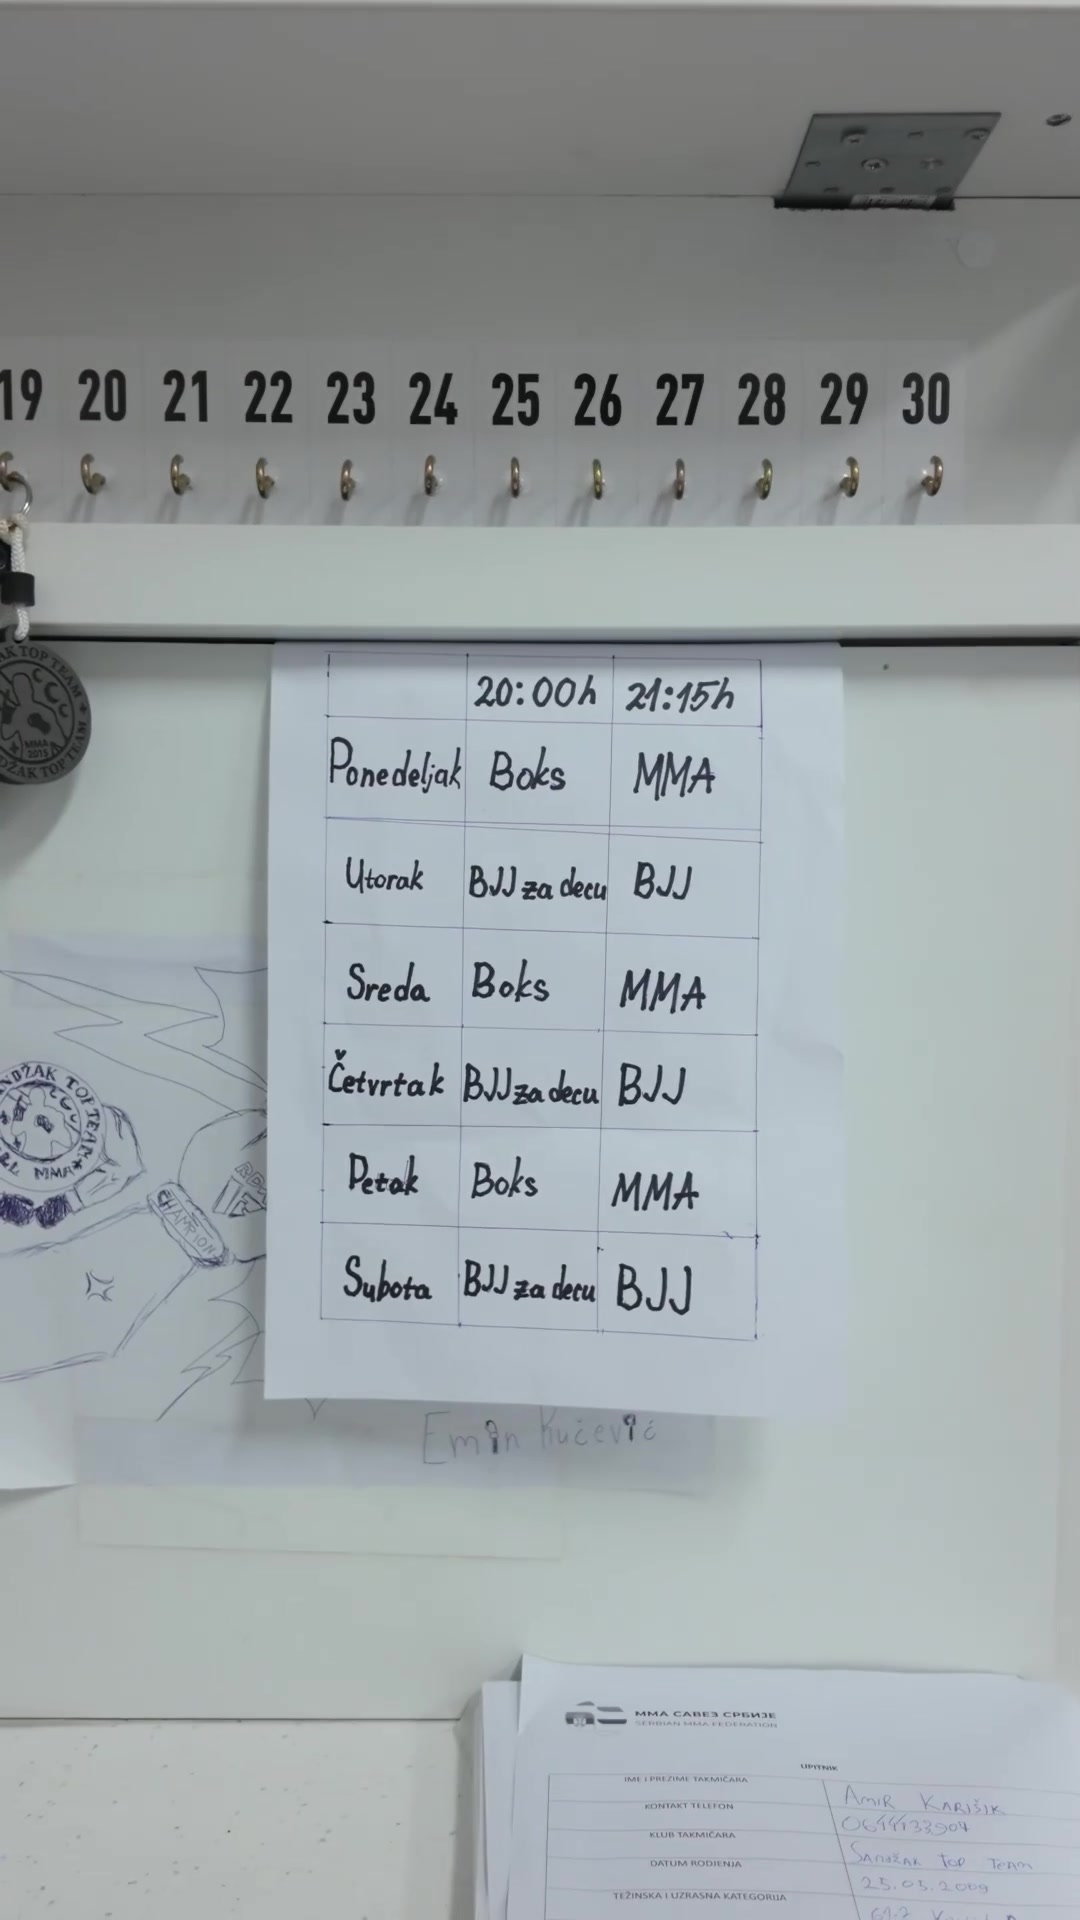 19 20 21 22 23 24 25 26 27 28 29 30
AK TOP TEAM
MMA
2015
DŽAK TOP TEAM
20:00h 21:15h
Ponedeljak Boks MMA
Utorak BJJ za decu BJJ
Sreda Boks MMA
Četvrtak BJJ za decu BJJ
Petak Boks MMA
Subota BJJ za decu BJJ
NDŽAK TOP TEAM
MMA
CHAMPION
Emin Kučević
ММА САВЕЗ СРБИЈЕ
SERBIAN MMA FEDERATION
UPITNIK
IME I PREZIME TAKMIČARA AMIR KARIŠIK
KONTAKT TELEFON 0644133904
KLUB TAKMIČARA SANDŽAK TOP TEAM
DATUM RODJENJA 25.05.2009
TEŽINSKA I UZRASNA KATEGORIJA